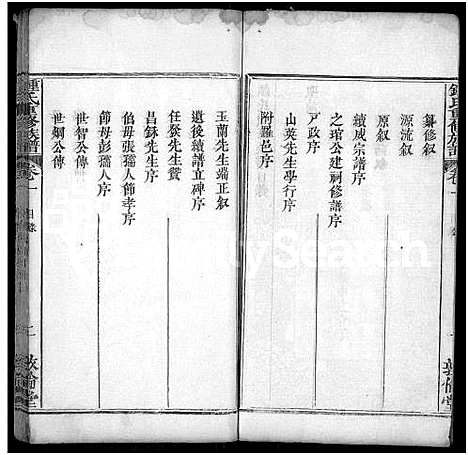 鍾氏重修族譜
卷一
纂修叙
源流叙
原叙
續成宗譜序
之琯公建祠修譜序
戸政序
山英先生學行序
附羅邑序
敦倫堂
玉蘭先生端正叙
遺後續譜立碑序
任發先生贊
昌錸先生序
伯母張孺人節孝序
節母彭孺人序
世智公傳
世嫺公傳
鍾氏重修族譜
卷一
目錄
二
敦倫堂
FamilySearch